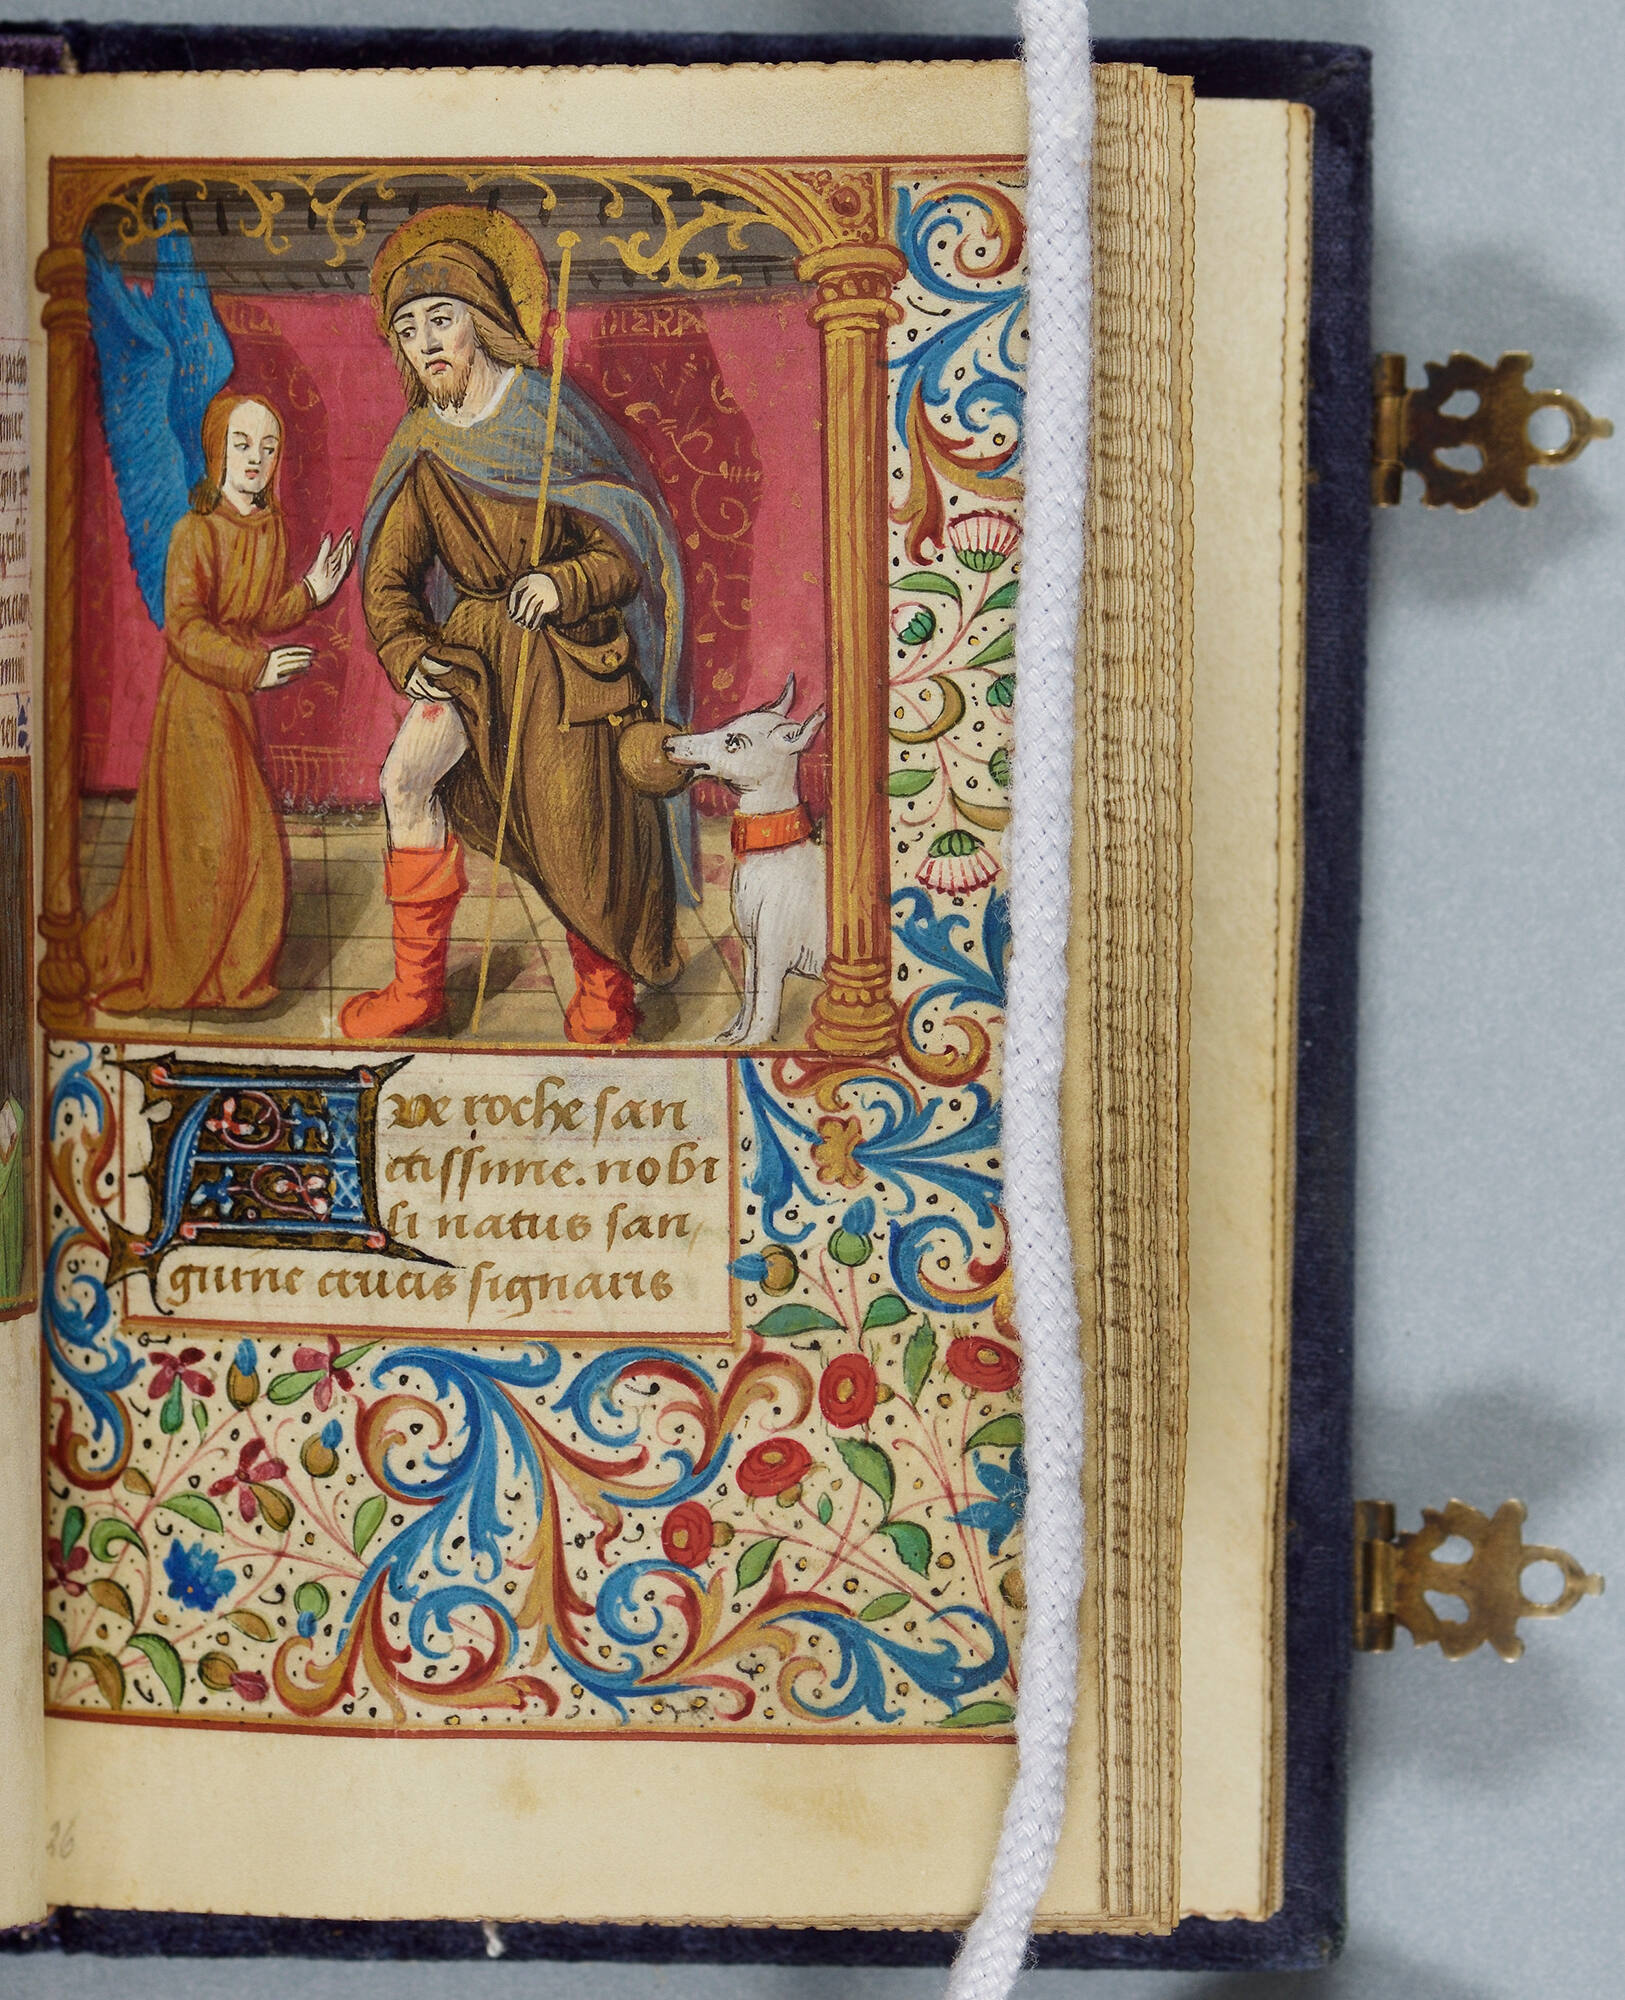 Ave roche san
ctissime. nobi
li natus san
guine crucis signaris
26